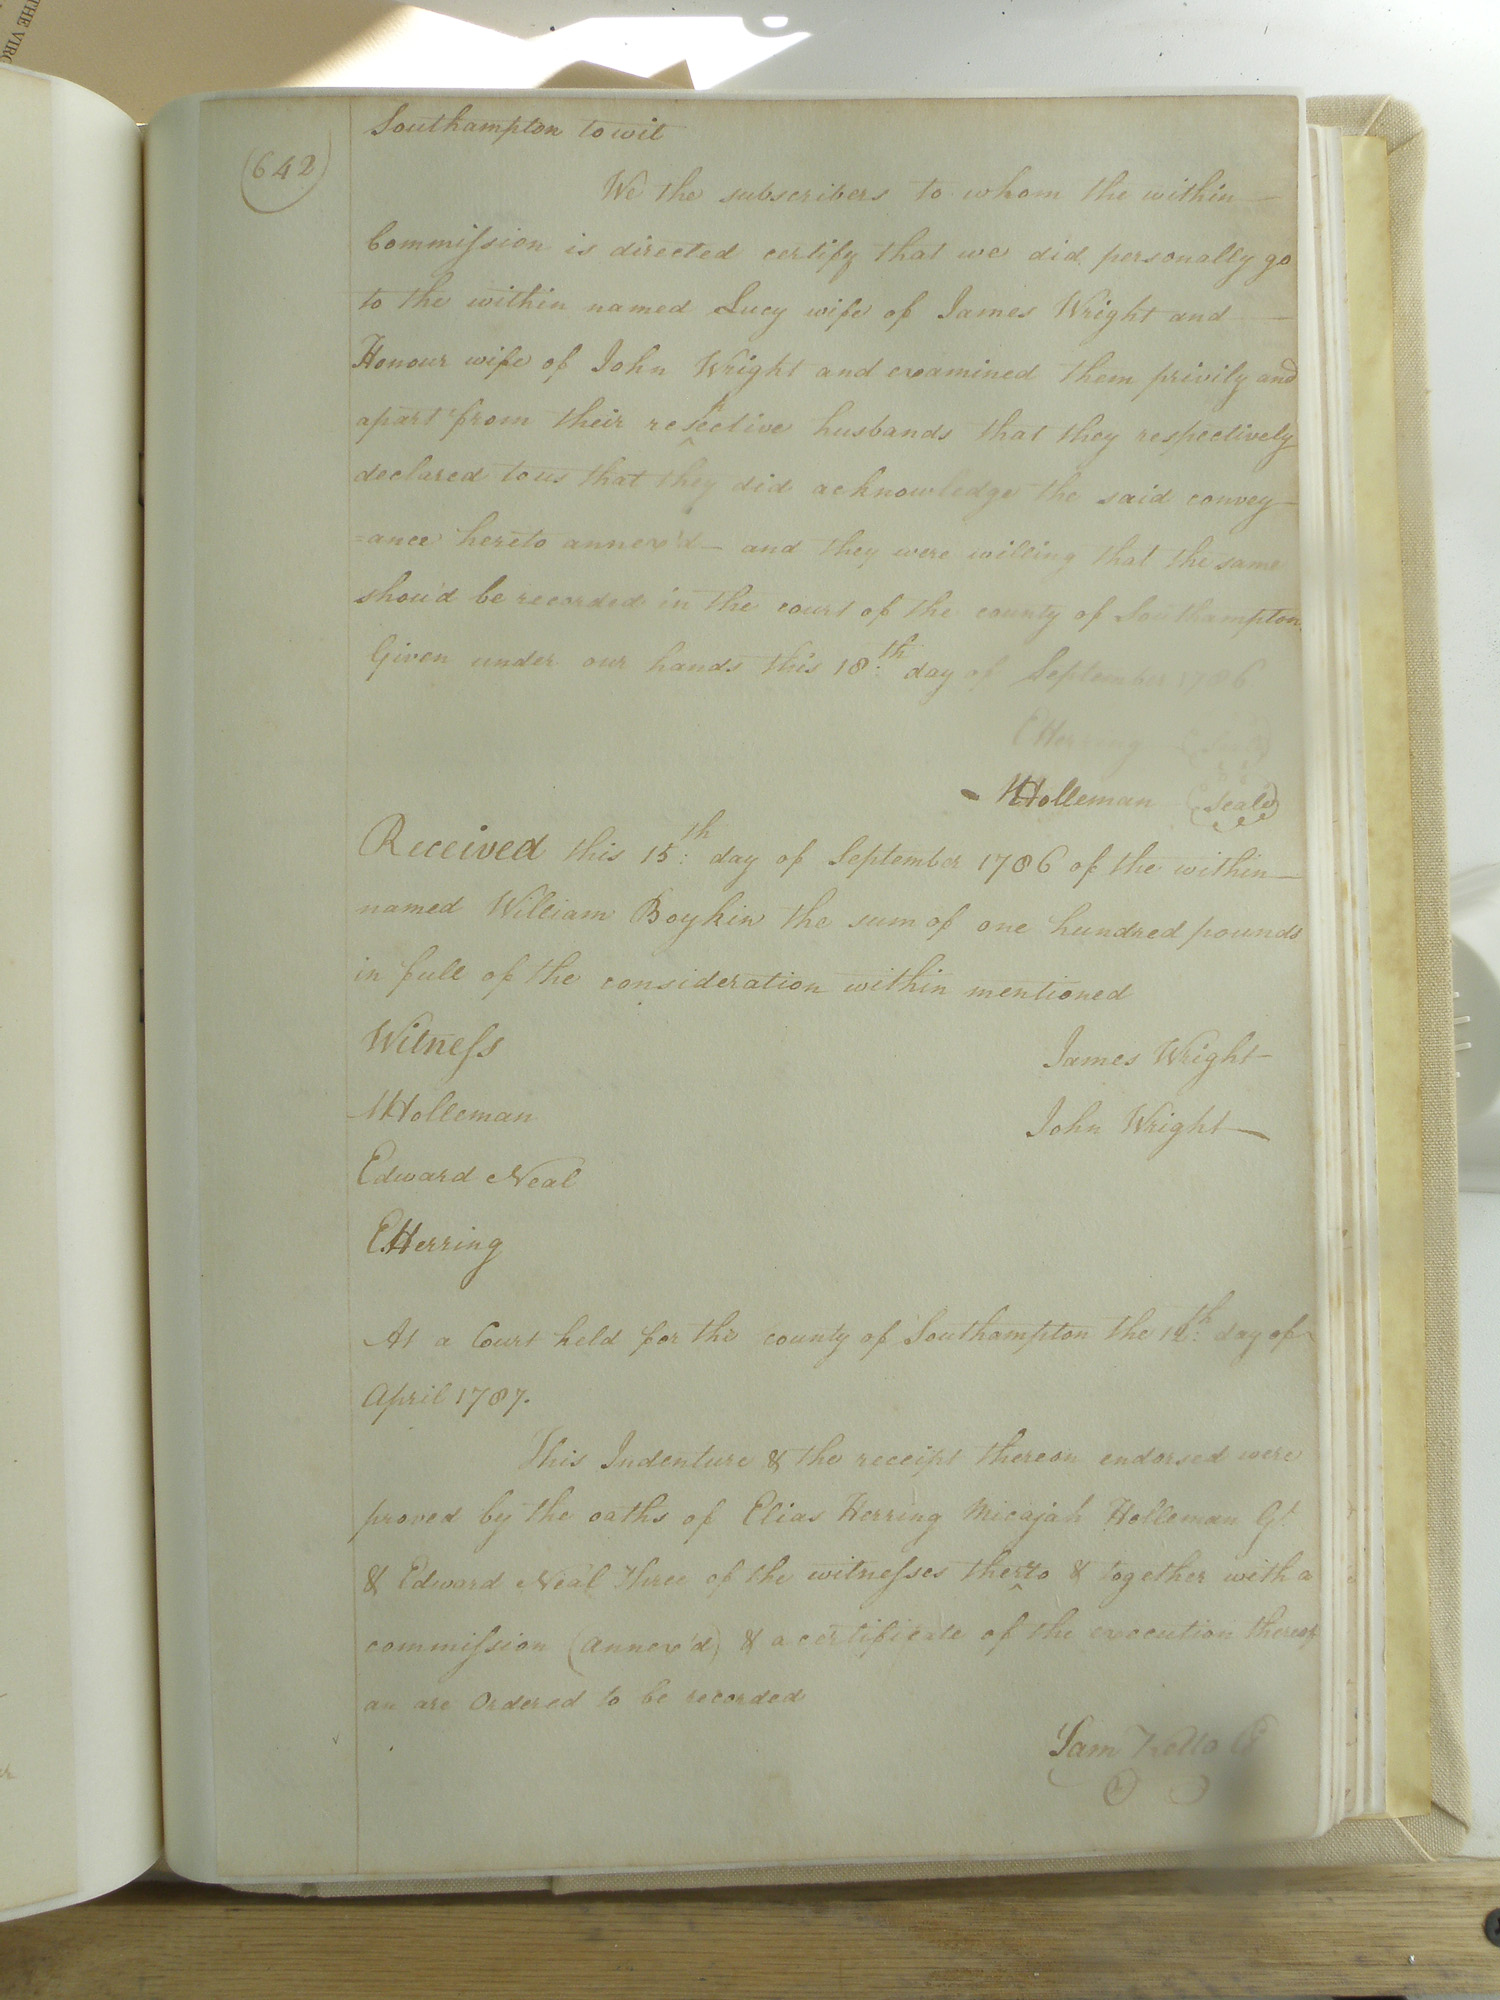 THE VIRG
(642)
Southampton to wit
We the subscribers to whom the within
Commission is directed certify that we did personally go
to the within named Lucy wife of James Wright and
Honour wife of John Wright and examined them privily and
apart from their respective husbands that they respectively
declared to us that they did acknowledge the said convey
=ance hereto annex'd and they were willing that the same
shoud be recorded in the court of the county of Southampton.
Given under our hands this 18th day of September 1786
EHerring (Seal)
MHolleman (Seal)
Received this 15th day of September 1786 of the within
named William Boykin the sum of one hundred pounds
in full of the consideration within mentioned
Witness
James Wright
MHolleman
John Wright
Edward Neal
EHerring
At a Court held for the county of Southampton the 12th day of
April 1787.
This Indenture & the receipt thereon endorsed were
proved by the oaths of Elias Herring Micajah Holleman Gt.
& Edward Neal three of the witnesses thereto & together with a
commission (annex'd) & a certificate of the execution thereof
are Ordered to be recorded
Sam Kello